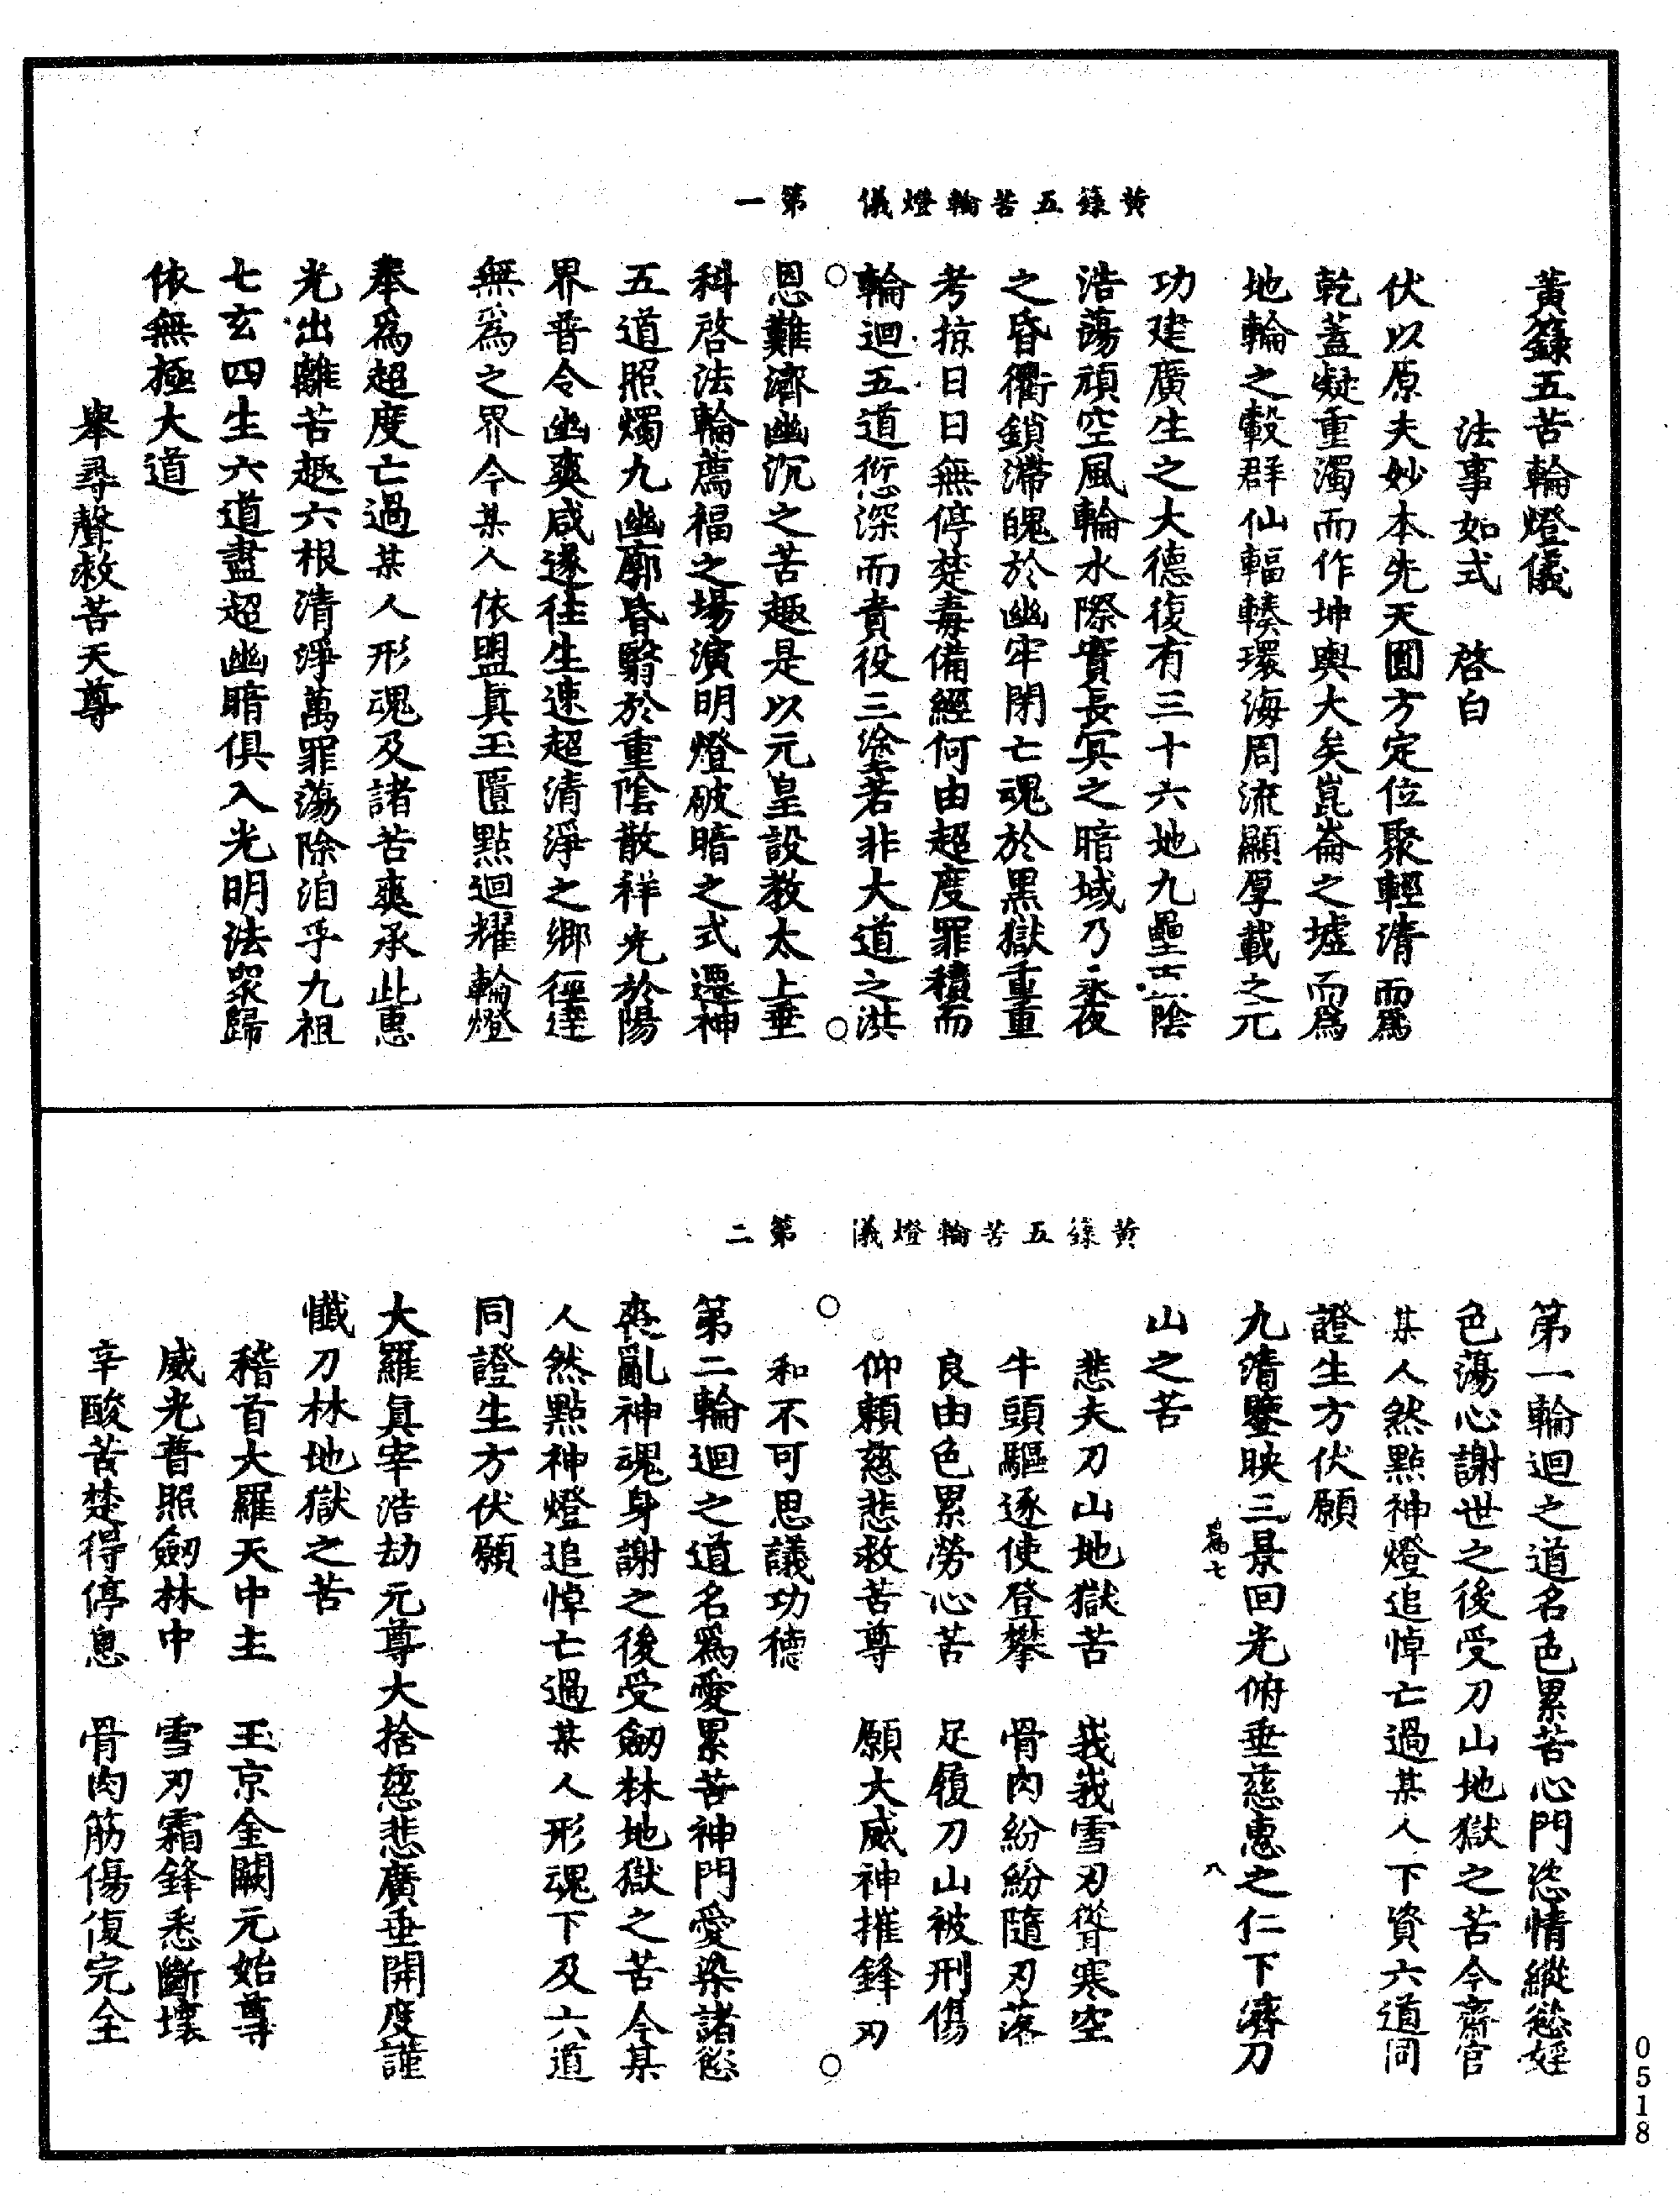 黃籙五苦輪燈儀　第一
黃籙五苦輪燈儀
法事如式　啓白
伏以原夫妙本先天圓方定位聚輕清而爲
乾蓋凝重濁而作坤輿大矣崑崙之墟而爲
地輪之轂群仙輻輳環海周流顯厚載之元
功建廣生之大德復有三十六地九壘土陰
浩蕩頑空風輪水際實長冥之暗域乃永夜
之昏衢鎖滯魄於幽牢閉亡魂於黑獄重重
考掠日日無停楚毒備經何由超度罪積而
輪迴五道愆深而責役三塗若非大道之洪
恩難濟幽沉之苦趣是以元皇設教太上垂
科啓法輪薦福之場演明燈破暗之式遷神
五道照燭九幽廓昏翳於重陰散祥光於陽
界普令幽爽咸遂往生速超清淨之鄉徑達
無爲之界今某人依盟眞玉匱點迴耀輪燈
奉爲超度亡過某人形魂及諸苦爽承此惠
光出離苦趣六根清淨萬罪蕩除洎乎九祖
七玄四生六道盡超幽暗俱入光明法衆歸
依無極大道
舉尋聲救苦天尊
黃籙五苦輪燈儀　第二
第一輪迴之道名色累苦心門恣情縱慾婬
色蕩心謝世之後受刀山地獄之苦今齋官
某人然點神燈追悼亡過某人下資六道同
證生方伏願
九清鑒映三景回光俯垂慈惠之仁下濟刀
七　八
山之苦
悲夫刀山地獄苦　峩峩雪刃聳寒空
牛頭驅逐使登攀　骨肉紛紛隨刃落
良由色累勞心苦　足履刀山被刑傷
仰頼慈悲救苦尊　願大威神摧鋒刃
和不可思議功德
第二輪迴之道名爲愛累苦神門愛染諸慾
亂神魂身謝之後受劒林地獄之苦今某
人然點神燈追悼亡過某人形魂下及六道
同證生方伏願
大羅眞宰浩劫元尊大捨慈悲廣垂開度謹
懺刀林地獄之苦
稽首大羅天中主　玉京金闕元始尊
威光普照劒林中　雪刃霜鋒悉斷壞
辛酸苦楚得停息　骨肉筋傷復完全
0518